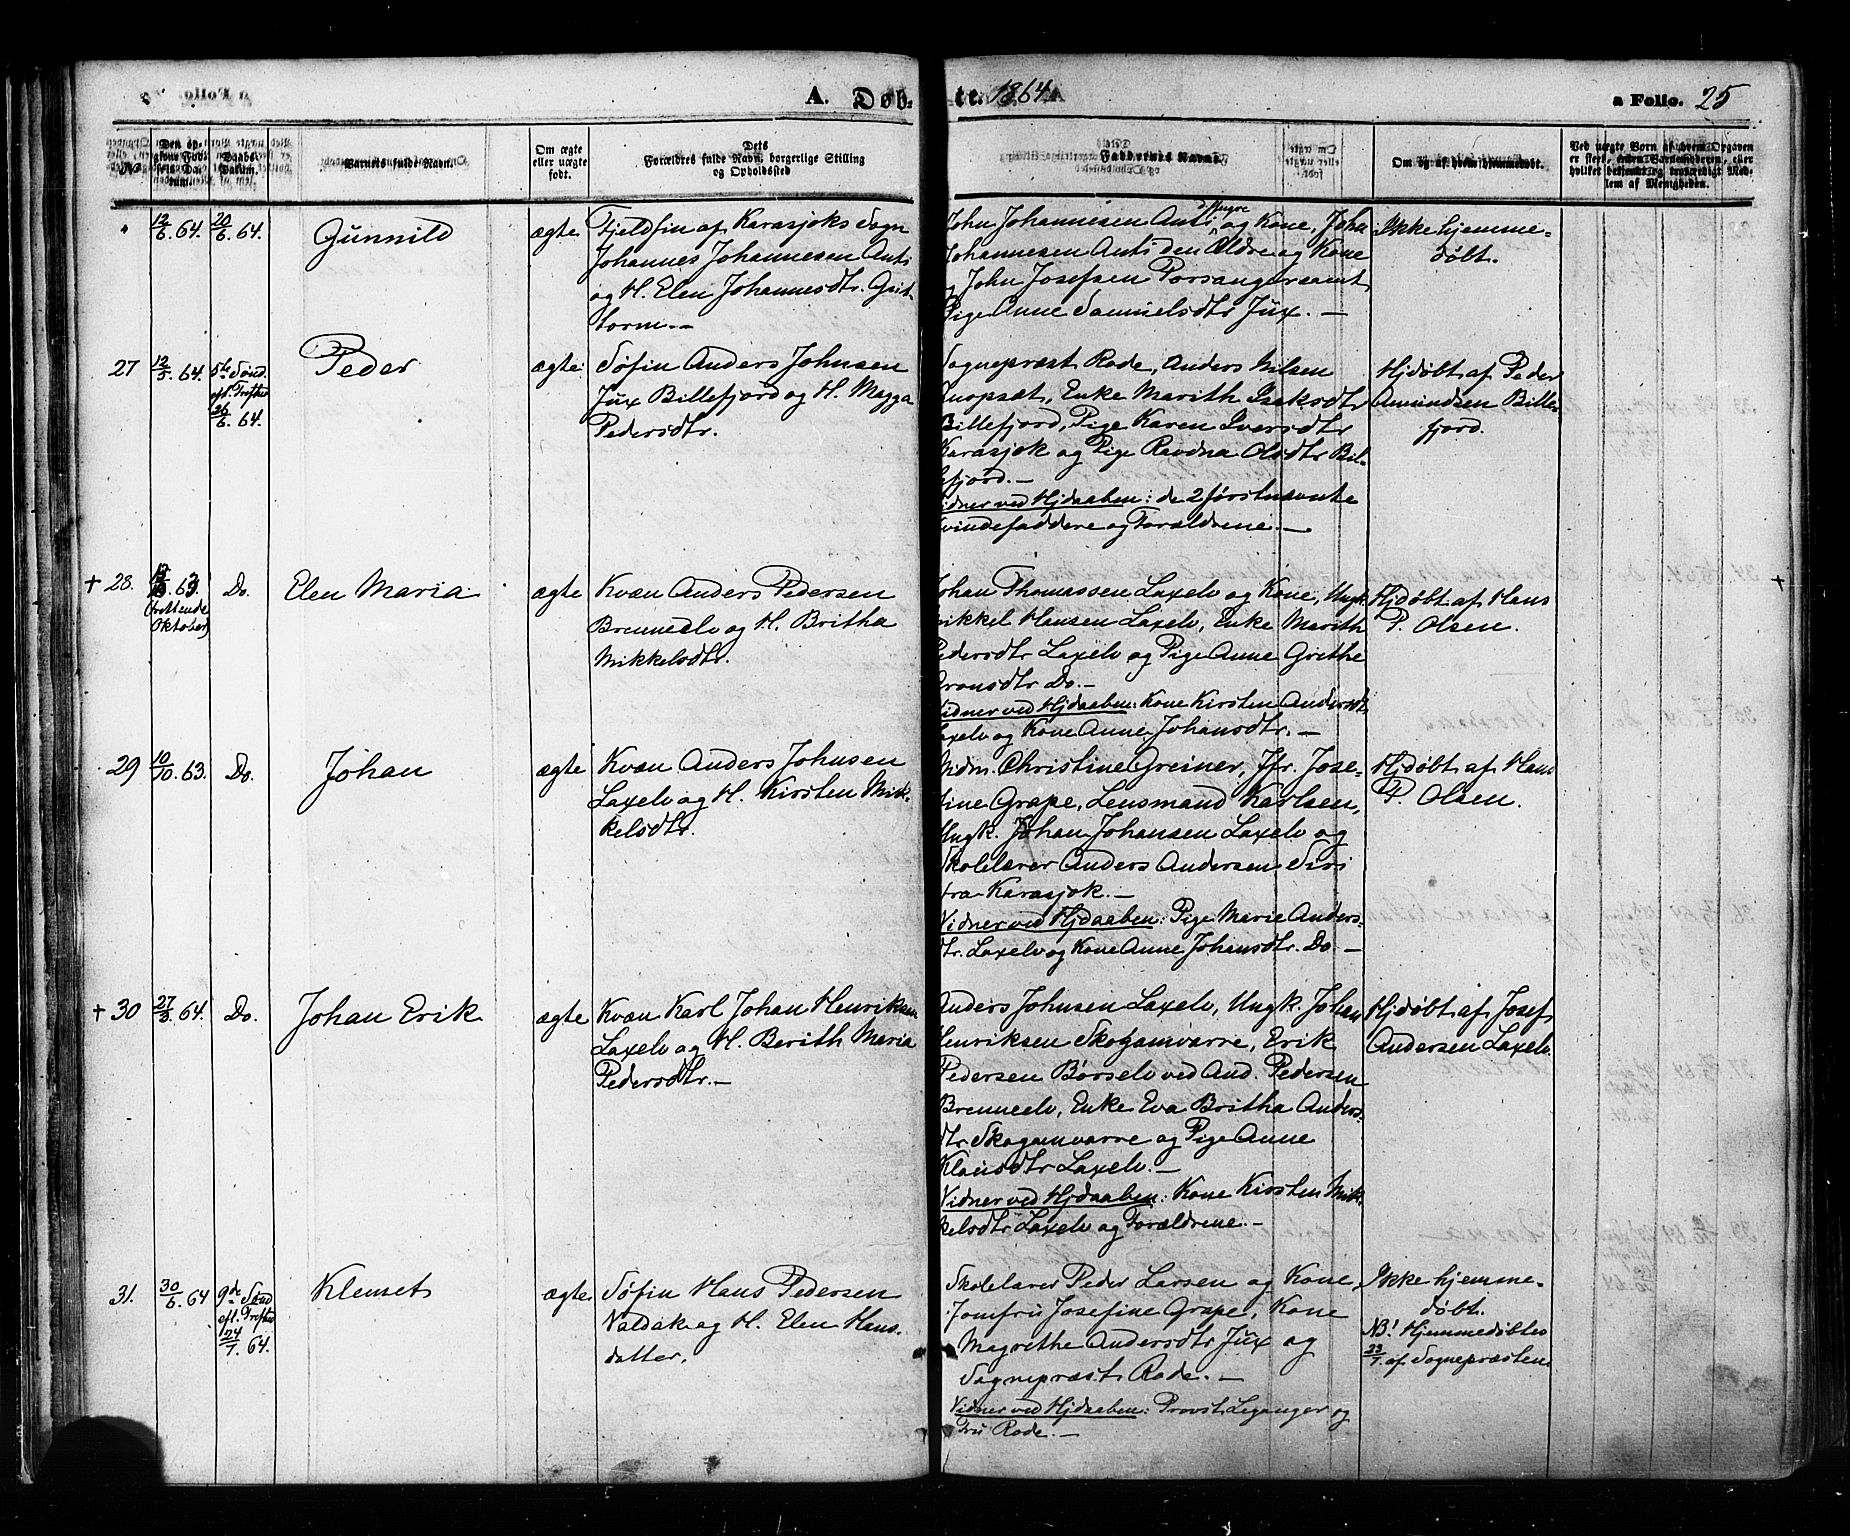 A. Døb-
te. 1864.
a Folio. 25
No
Den opgivne Fødsels Datum.
Daabs-Datum.
Barnets fulde Navn.
Om ægte eller uægte født.
Dets Forældres fulde Navn, borgerlige Stilling og Opholdssted
Faddernes Navne.
Om og af hvem hjemmedøbt.
Ved uægte Børn af hvem Opgaven er skeet, enten Barnemoderen, eller hvilket bekjendt og troværdigt Medlem af Menigheden.
12/6. 64.
20/6. 64.
Gunnild
ægte
Fjeldfin af Karasjoks Sogn
Johannes Johannesen Anti
og H. Elen Johannesdtr. Gut-
torm.—
John Johannesen Anti d. Yngre og Kone, Joha
Johannesen Anti den Ældre og Kone
John Josefsen Porsanger samt
Pige Anne Samuelsdtr Jux. —
Ikke hjemme-
døbt.
27
12/5. 64.
5te Sønd.
eft. Trefts
26/6. 64.
Peder
ægte
Søfin Anders Johnsen
Jux Billefjord og H. Magga
Pedersdtr.
Sognepræst Rode, Anders Nilsen
Enke Marith Isaksdtr
Billefjord, Pige Karen Iversdtr
Karasjok og Pige Ravdna Olsdtr Bil-
lefjord.—
Vidner ved Hjdaaben: de 2 førstnævnte
Kvindefaddere og Forældrene. —
Hjdøbt af Peder
Amundsen Bille-
fjord.
+ 28.
63
(trettende
Oktober)
Do.
Elen Maria
ægte
Kvæn Anders Pedersen
Brenneelv og H. Britha
Mikkelsdtr.
Johan Thomassen Laxelv og Kone, Ungk.
Mikkel Hansen Laxelv, Enke Marith
Pedersdtr Laxelv og Pige Anne Grethe
Aronsdtr Do.—
Vidner ved Hjdaaben: Kone Kirsten Andersdtr
Laxelv og Kone Anne Johansdtr. —
Hjdøbt af Hans
P. Olsen.
29
10/10. 63.
Do.
Johan
ægte
Kvæn Anders Johnsen
Laxelv og H. Kirsten Mik-
kelsdtr.
Mdm. Christine Greiner, Jfr. Jose-
fine Grape, Lensmand Karlsen,
Ungk. Johan Johansen Laxelv og
Skolelærer Anders Andersen Siri
fra Karasjok. —
Vidner ved Hjdaaben: Pige Marie Anders-
dtr. Laxelv og Kone Anne Johansdtr. Do. —
Hjdøbt af Hans
P. Olsen.
+ 30
27/3. 64.
Do.
Johan Erik
ægte
Kvæn Karl Johan Henriksen
Laxelv og H. Berith Maria
Pedersdtr.—
Anders Johnsen Laxelv, Ungk. Johan
Henriksen Skoganvarre, Erik
Pedersen Børselv ved And. Pedersen
Brenneelv, Enke Eva Britha Anders-
dtr. Skoganvarre og Pige Anne
Klausdtr Laxelv. —
Vidner ved Hjdaaben: Kone Kirsten Mik-
kelsdtr Laxelv og Forældrene. —
Hjdøbt af Josef
Andersen Laxelv.
31.
30/6. 64
9de Sønd
eft. Trefts
24/7. 64.
Klemet
ægte
Søfin Hans Pedersen
Valdak og H. Elen Hans-
datter.
Skolelærer Peder Larsen og Kone,
Jomfru Josefine Grape, Kone
Magrethe Andersdtr Jux og
Sognepræst Rode. —
Vidner ved Hjdaaben: Provst Leganger og
Fru Rode. —
Ikke hjemme-
døbt.
NB! Hjemmedøbtes
23/7. af Sognepræsten.